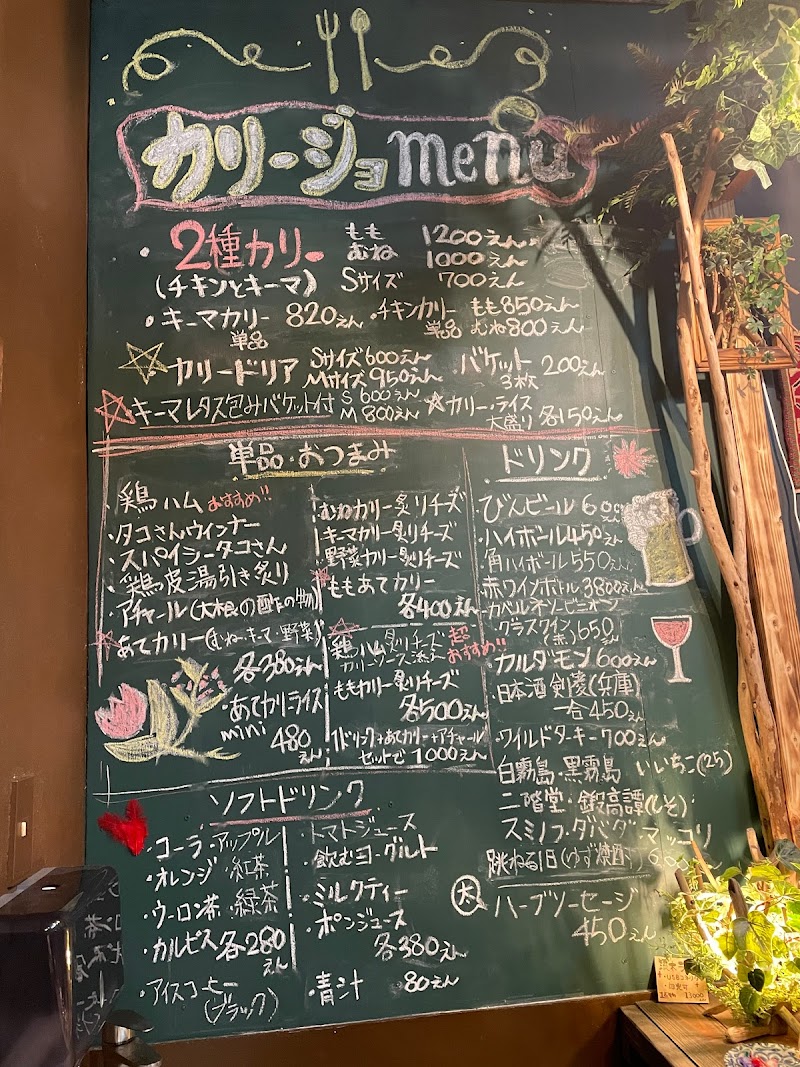 カリージョmenu
・2種カリー。 もも 1200えん
むね 1000えん
(チキンとキーマ) Sサイズ 700えん
・キーマカリー 820えん
単品
・チキンカリー もも850えん
単品 むね800えん
☆カリードリア Sサイズ600えん
Mサイズ950えん
・バケット 200えん
3枚
☆キーマレタス包みバケット付 S 600えん
M 800えん
☆カリー・ライス
大盛り 各150えん
単品・おつまみ
・鶏ハム おすすめ!!
・タコさんウィンナー
・スパイシータコさん
・鶏皮湯引き炙り
・アチャール(大根の酢の物)
☆あてカリー(むね・キーマ・野菜)
各380えん
・あてカリーライス
mini 480
えん
むねカリー炙りチーズ
キーマカリー炙りチーズ
野菜カリー炙りチーズ
ももあてカリー
各400えん
☆鶏ハム炙りチーズ 超
カリーソース おすすめ!!
ももカリー炙りチーズ
各500えん
1ドリンク+あてカリー+アチャール
セットで1000えん
ドリンク
・びんビール 600
・ハイボール450えん
・角ハイボール550えん
・赤ワインボトル 3800えん
カベルネソービニオン
・グラスワイン 650
(赤) えん
カルダモン 600えん
・日本酒 剣菱(兵庫)
一合 450えん
・ワイルドターキー700えん
白霧島・黒霧島 いいちこ(25)
二階堂・鍛高譚(しそ)
スミノフ・ダバダ マッコリ
跳ねる1日(ゆず焼酎)
犬 ハーブソーセージ
450えん
ソフトドリンク
・コーラ・アップル
・オレンジ・紅茶
・ウーロン茶・緑茶
・カルピス 各280
えん
・アイスコーヒー
(ブラック)
・トマトジュース
・飲むヨーグルト
・ミルクティー
・ポンジュース
各380えん
・青汁 80えん